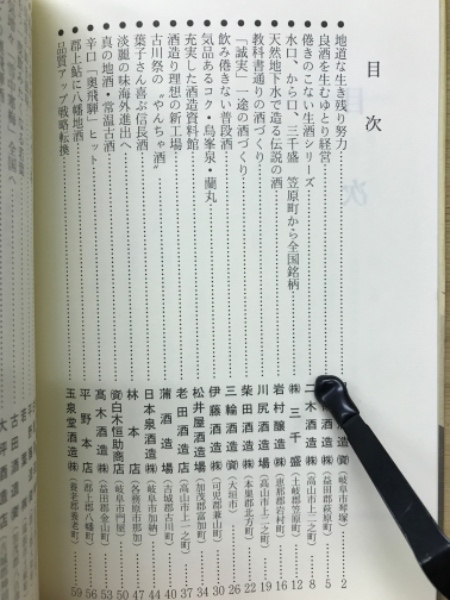 目次
●地道な生き残り努力 酒造㈾(岐阜市琴塚) 2
●良酒を生むゆとり経営 酒造㈱(益田郡萩原町) 5
●倦きのこない生酒シリーズ 二木酒造㈱(高山市上二之町) 8
●水口、から口、三千盛 笠原町から全国銘柄 ㈱三千盛(土岐郡笠原町) 12
●天然地下水で造る伝説の酒 岩村醸造㈱(恵那郡岩村町) 16
●教科書通りの酒づくり 川尻酒造場(高山市上二之町) 19
●「誠実」一途の酒づくり 柴田酒造㈱(本巣郡北方町) 22
●飲み倦きない普段酒 三輪酒造㈾(大垣市) 26
●気品あるコク・烏峯泉・蘭丸 伊藤酒造㈱(可児郡兼山町) 30
●充実した酒造資料館 松井屋酒造場(加茂郡富加町) 34
●酒造り理想の新工場 老田酒造㈱(高山市上一之町) 37
●古川祭の〝やんちゃ酒〟 蒲酒造場(吉城郡古川町) 40
●葉子さん喜ぶ信長酒 日本泉酒造㈱(岐阜市加納) 44
●淡麗の味海外進出へ 林本店(各務原市那加) 47
●真の地酒・常温古酒 ㈾白木恒助商店(岐阜市門屋) 50
●辛口「奥飛騨」ヒット 高木酒造㈱(益田郡金山町) 53
●郡上鮎に八幡地酒 平野本店(郡上郡八幡町) 56
●品質アップ戦略転換 玉泉堂酒造㈱(養老郡養老町) 59